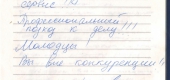 сервис
Профессиональный
подход к делу!!!
Молодцы
Вы вне конкуренции!!!